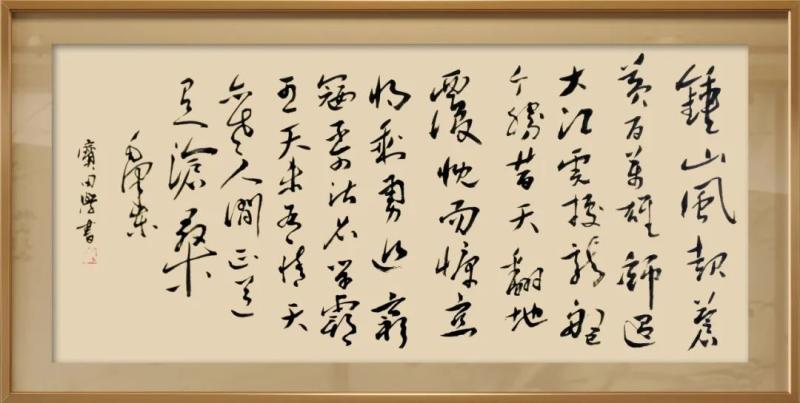 鍾山風起蒼
黃百萬雄師過
大江虎據龍盤
今勝昔天翻地
覆慨而慷宜
將剩勇追窮
寇不可沽名學霸
王天若有情天
亦老人間正道
是滄桑
毛澤東
寶田學書